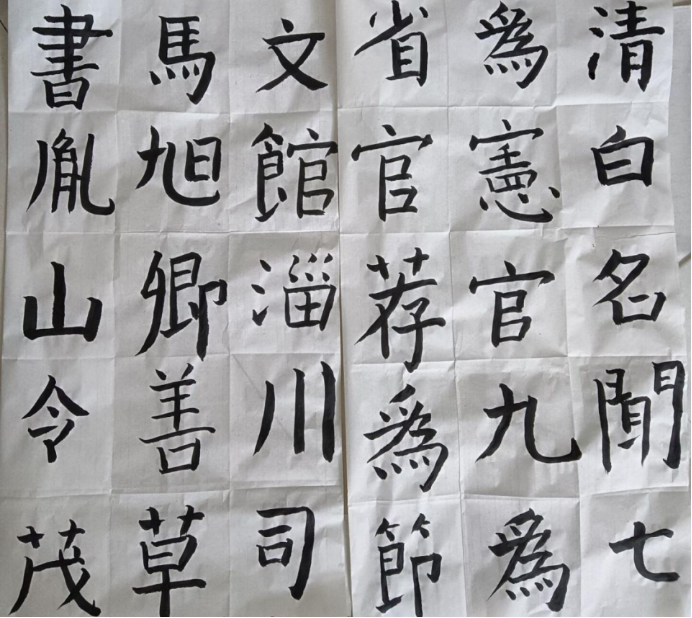 清白名聞七
爲憲官九爲
省官荐爲節
文館淄川司
馬旭卿善草
書胤山令茂